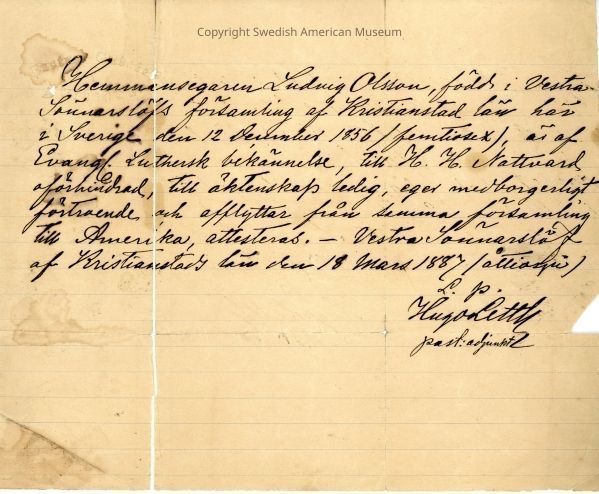 Copyright Swedish American Museum
Hemmansegaren Ludvig Olsson, född i Vestra
Sönnarslöfs församling af Kristianstad län här
i Sverige den 12 December 1856 (femtiosex), är af
Evang. Luthersk bekännelse, till H. H. Nattvard
oförhindrad, till äktenskap ledig, eger medborgerligt
förtroende och afflyttar från samma församling
till Amerika, attesteras. — Vestra Sönnarslöf
af Kristianstads län den 18 Mars 1887 (åttiosju)
L. P.
Hugo
past: adjunkt